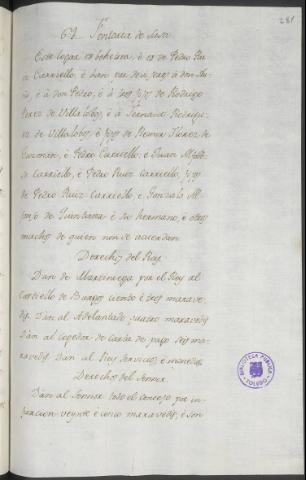 281
67 Fontoria de Suso
Este logar es behetria, è es de Pedro Rui
z Carriello, è han por devisero à don Nu
ño, è à don Pedro, è à los fijos de Rodrigo
Perez de Villalobos, è à Fernant Rodrigu
ez de Villalobos, è fijos de Remir Florez de
Guzman, è Pedro Carriello, è Juan Alfon
so Carriello, è Pedro Ruiz Carriello, fijos
de Pedro Ruiz Carriello è Gonzalo Al
fonso de Quintana è su hermano, è otros
muchos de quien non se acuerdan
Derechos del Rey
Dan de Martiniega por el Rey al
Castiello de Burgos ciento è tres marave
dis. Dan al Adelantado quatro maravedis
Dan al Cogedor de carta de pago seis ma
ravedis Dan al Rey servicios è monedas
Derechos del Sennor
Dan al Sennor todo el concejo por in
furcion veynte è cinco maravedis, è son
BIBLIOTECA PÚBLICA
TOLEDO